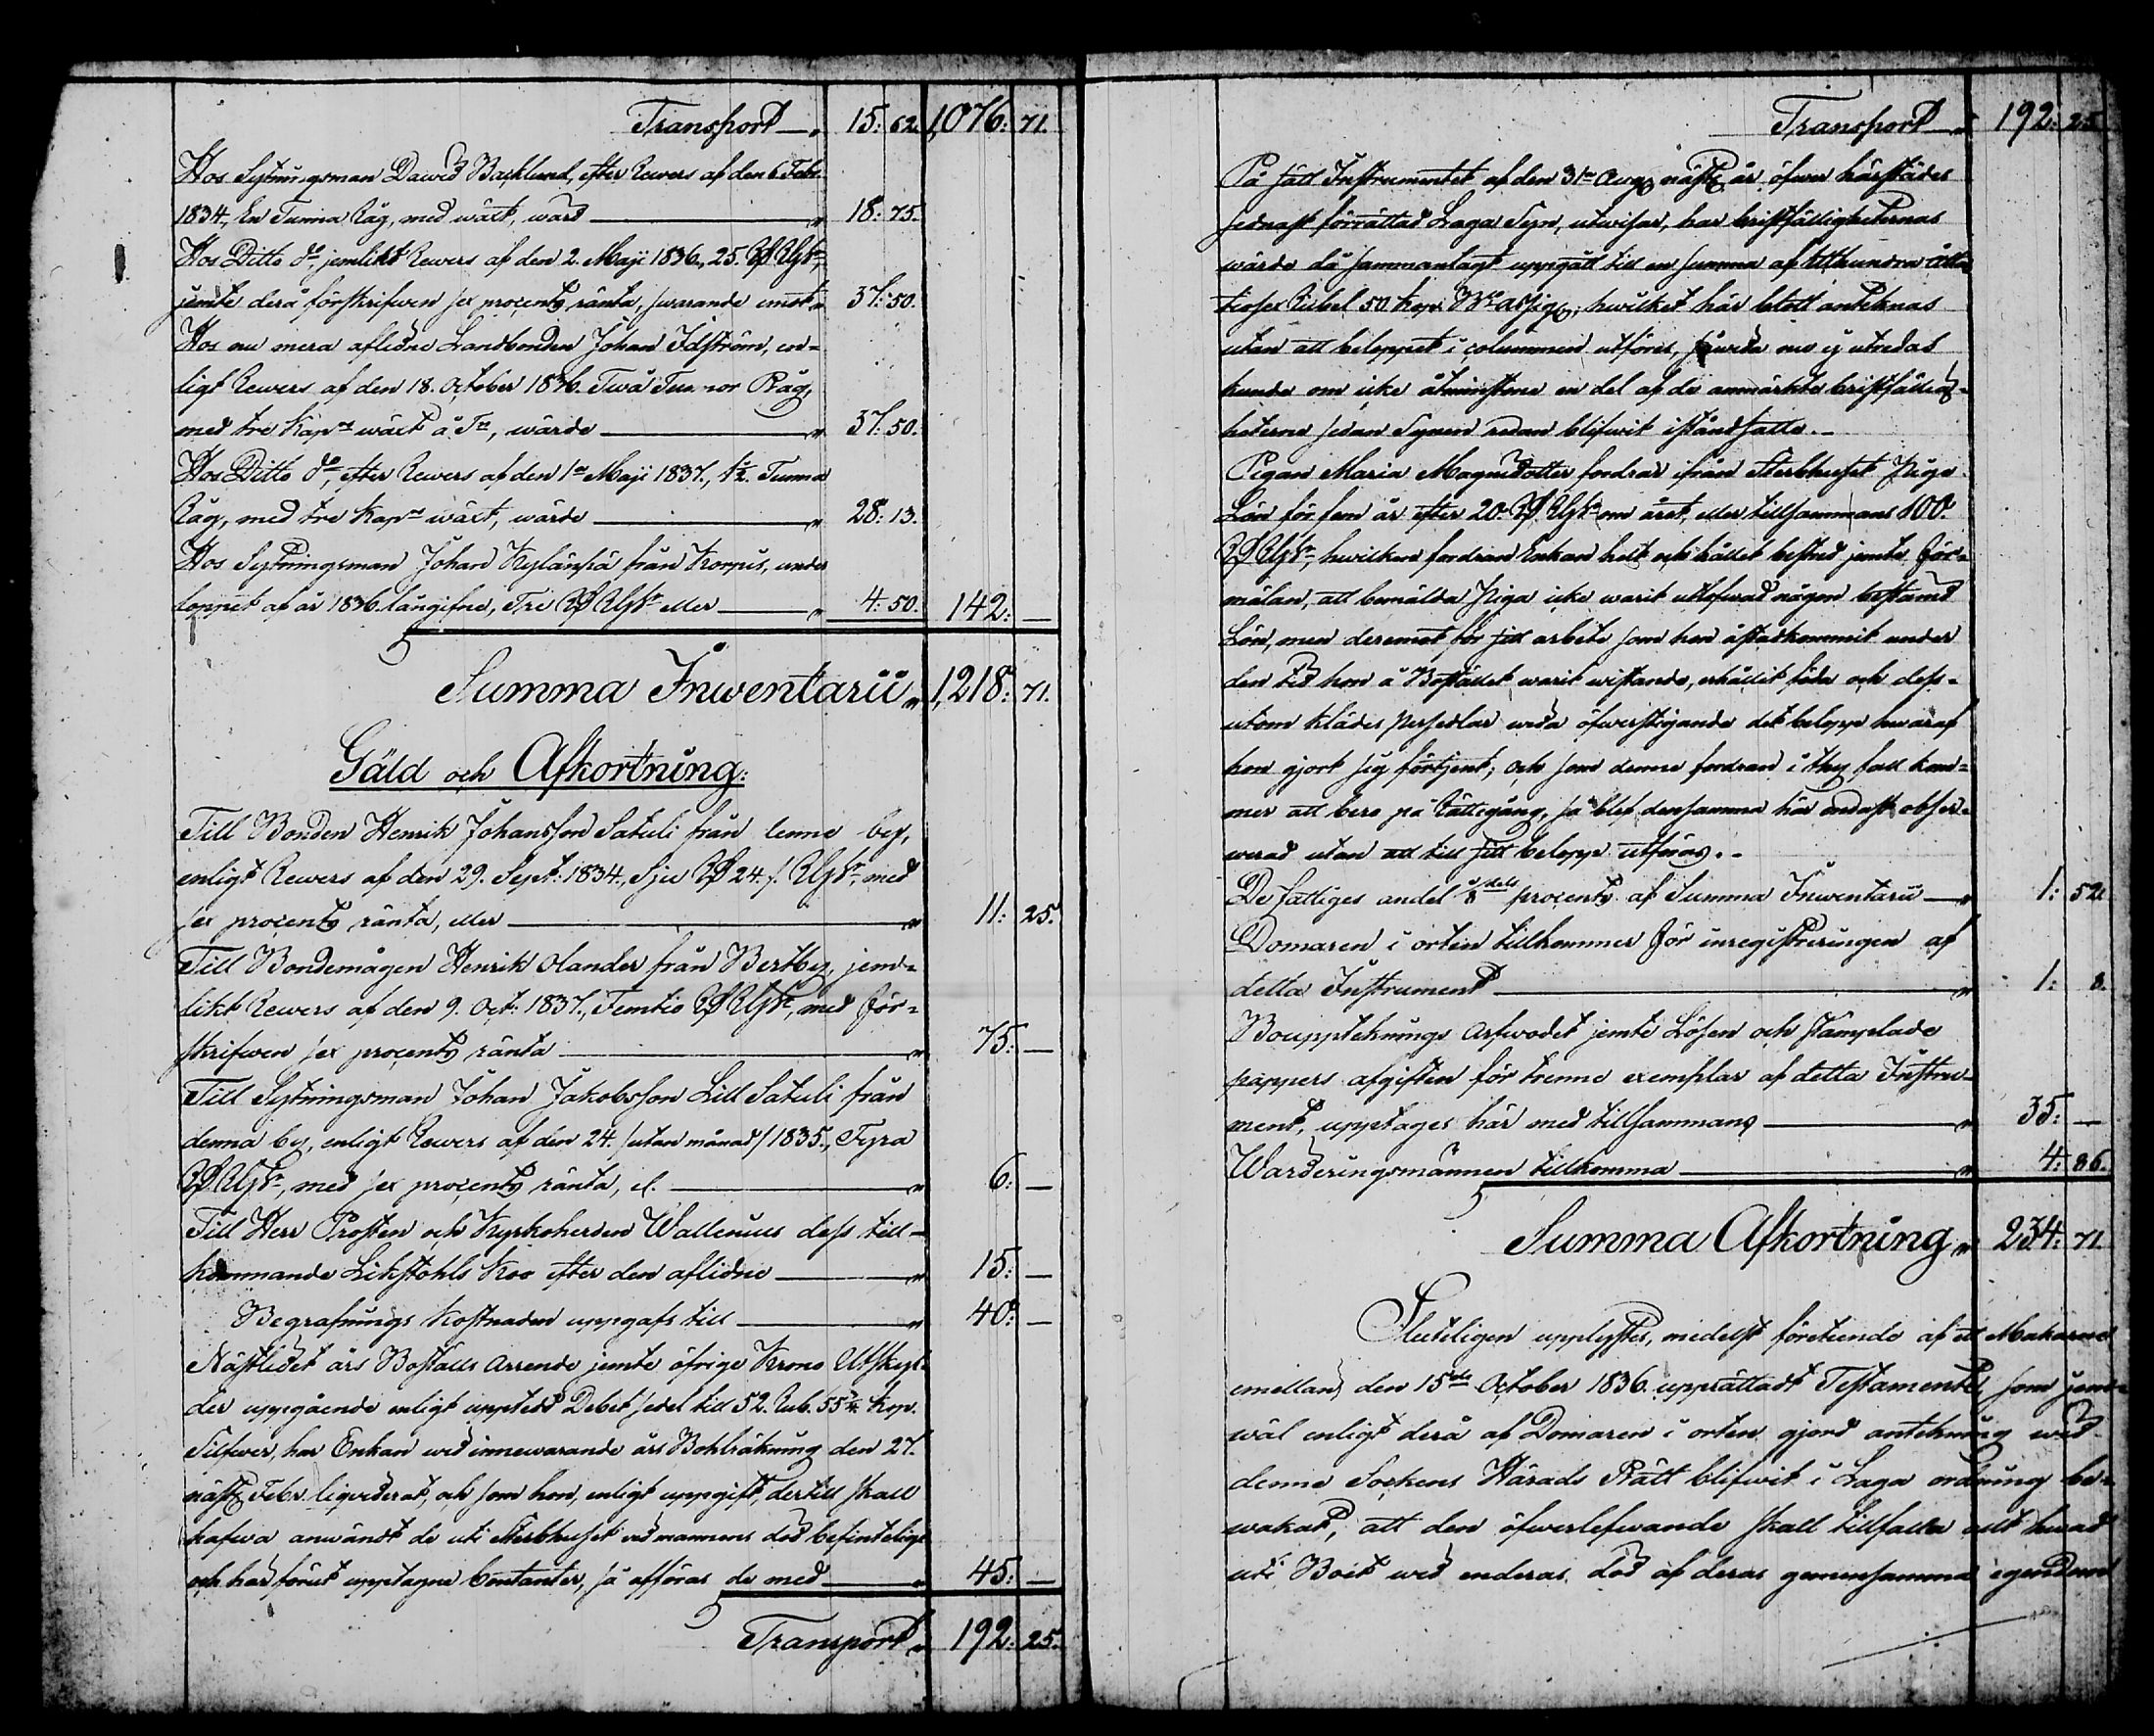 Transport 15: 62. 1,076: 71.
Hos Sytningsman Dawid Backlund, efter Rewers af den 6 Febr.
1834, En Tunna Råg, med wäxt, wärd 18: 75.
Hos Ditto do, jemlikt Rewers af den 2. Maji 1836, 25. Rd Rgs,
jemte derå förskrifwen sex procents ränta, swarande emot 37: 50.
Hos nu mera aflidne Landbonden Johan Idström, en-
ligt Rewers af den 18. October 1836. Twå Tunnor Råg,
med tre Kapr wäxt å Tn, wärde 37: 50.
Hos Ditto do, efter Rewers af den 1ra Maji 1837, 1½. Tunna
Råg, med tre Kapr wäxt, wärde 28: 13.
Hos Sytningsman Johan Kylänpä från Korpis, under
loppet af år 1836 långifne, Tre Rd Rgs eller 4: 50. 142: —
Summa Inwentarii 1,218: 71.
Gäld och Afkortning:
Till Bonden Henrik Johansson Satuli från denne by,
enligt Rewers af den 29. Sept: 1834, Sju Rd 24. s. Rgs, med
sex procents ränta, eller 11: 25.
Till Bondemågen Henrik Olander från Bertby, jem-
likt Rewers af den 9. Oct: 1837, Femtio Rd Rgs, med för-
skrifwen sex procents ränta 75: —
Till Sytningsman Johan Jakobsson Lill Satuli från
denna by, enligt Rewers af den 24. /utan månad/ 1835, Fyra
Rd Rgs, med sex procents ränta, el. 6: —
Till Herr Prosten och Kyrkoherden Wallenius dess till-
kommande Likstohls Koo efter den aflidne 15: —
Begrafnings Kostnaden uppgafs till 40: —
Nästlidet års Boställs Arrende jemte öfrige Krono Utskyl-
der uppgående enligt uppteedt Debet sedel till 52. Rub. 55¾ Kop.
Silfwer, har Enkan wid innewarande års Bohlräkning den 27.
näst Febr liqviderat, och som hon, enligt uppgift, dertill skall
hafwa anwändt de uti Sterbhuset wid mannens död befinteliga
och här förut upptagne Contanter, så afföras de med 45: —
Transport 192: 25.
Transport 192: 25
På sätt Instrumentet af den 31ta Aug näst år öfwer härstädes
sednast förrättad Laga Syn, utwisar, har bristfälligheternas
wärde då sammantagt uppgått till en summa af Etthundra Åtta
tiosex Rubel 50 Kop: Bko Assign, hwilket här blott anteknas
utan att beloppet i columnen utföres, såwida nu ej utredas
kunde om icke åtminstone en del af de anmärkte bristfällig-
heterne sedan Synen redan blifwit iståndsatte.
Pigan Maria Magnidotter fordrar ifrån Sterbhuset piga
Lön för fem år efter 20. Rd Rgs om året, eller tillsammans 100.
Rd Rgs, hwilken fordran Enkan helt och hållet bestred jemte för-
mälan, att bemälda Piga icke warit utlofwad någon bestämd
Lön, men deremot för sitt arbete som hon åstadkommit under
den tid hon å Bostället warit wistande, erhållit föda och dess-
utom kläder persedlar wida öfwerstigande det belopp hwaraf
hon gjort sig förtjent; och som denne fordran i thy fall kom-
mer att bero på Rättegång, så blef densamma här endast obser-
werad utan att till sitt belopp utföras.
De fattiges andel ⅛dels procents af Summa Inwentarii 1: 52
Domaren i orten tillkommer för inregistreringen af
detta Instrument 1: 8.
Bouppteknings Arfwodet jemte Lösen och stämplade
pappers afgiften för trenne exemplar af detta Instru-
ment, upptages här med tillsammans 35: —
Warderingsmännen tillkomma 4: 86.
Summa Afkortning 234: 71
Sluteligen upplystes, medelst företeende af ett Makarne
emellan den 15de October 1836. upprättadt Testamente, som jem-
wäl enligt derå af Domaren i orten gjord antekning wid
denne Sockens Härads Rätt blifwit i Laga ordning be-
wakat, att den öfwerlefwande skall tillfalla allt hwad
uti Boet wid enderas död af deras gemensamma egendom